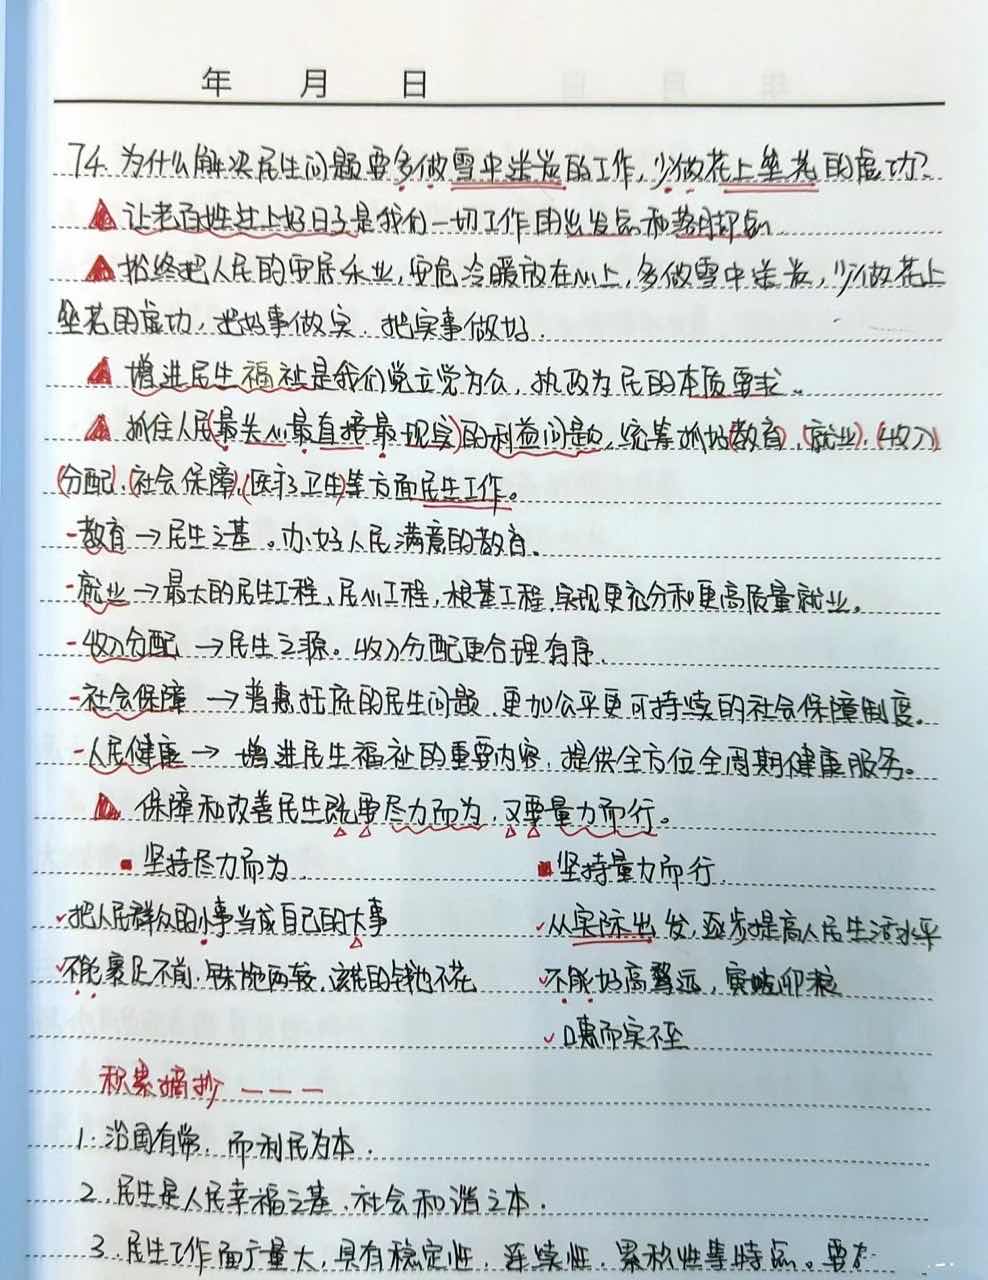 年 月 日
74. 为什么解决民生问题要多做雪中送炭的工作,少做花上垒花的虚功?
让老百姓过上好日子是我们一切工作的出发点和落脚点.
始终把人民的安居乐业,安危冷暖放在心上,多做雪中送炭,少做花上
垒花的虚功,把好事做实.把实事做好.
增进民生福祉是我们党立党为公,执政为民的本质要求.
抓住人民(最关心最直接最现实)的利益问题,统筹抓好(教育).(就业).(收入)
(分配).(社会保障).(医疗卫生)等方面民生工作。
-教育→民生之基。办好人民满意的教育.
-就业→最大的民生工程、民心工程,根基工程.实现更充分和更高质量就业。
-收入分配→民生之源。收入分配更合理有序.
-社会保障→普惠托底的民生问题.更加公平更可持续的社会保障制度。
-人民健康→增进民生福祉的重要内容.提供全方位全周期健康服务。
保障和改善民生既要尽力而为.又要量力而行。
坚持尽力而为. 坚持量力而行.
✓把人民群众的小事当成自己的大事 ✓从实际出发,逐步提高人民生活水平
✓不能裹足不前.铢施两较.该花的钱也不花 ✓不能好高骛远,寅吃卯粮
✓口惠而实不至
积累摘抄———
1.治国有常.而利民为本.
2.民生是人民幸福之基.社会和谐之本.
3.民生工作面广量大,具有稳定性.连续性.累积性等特点。要